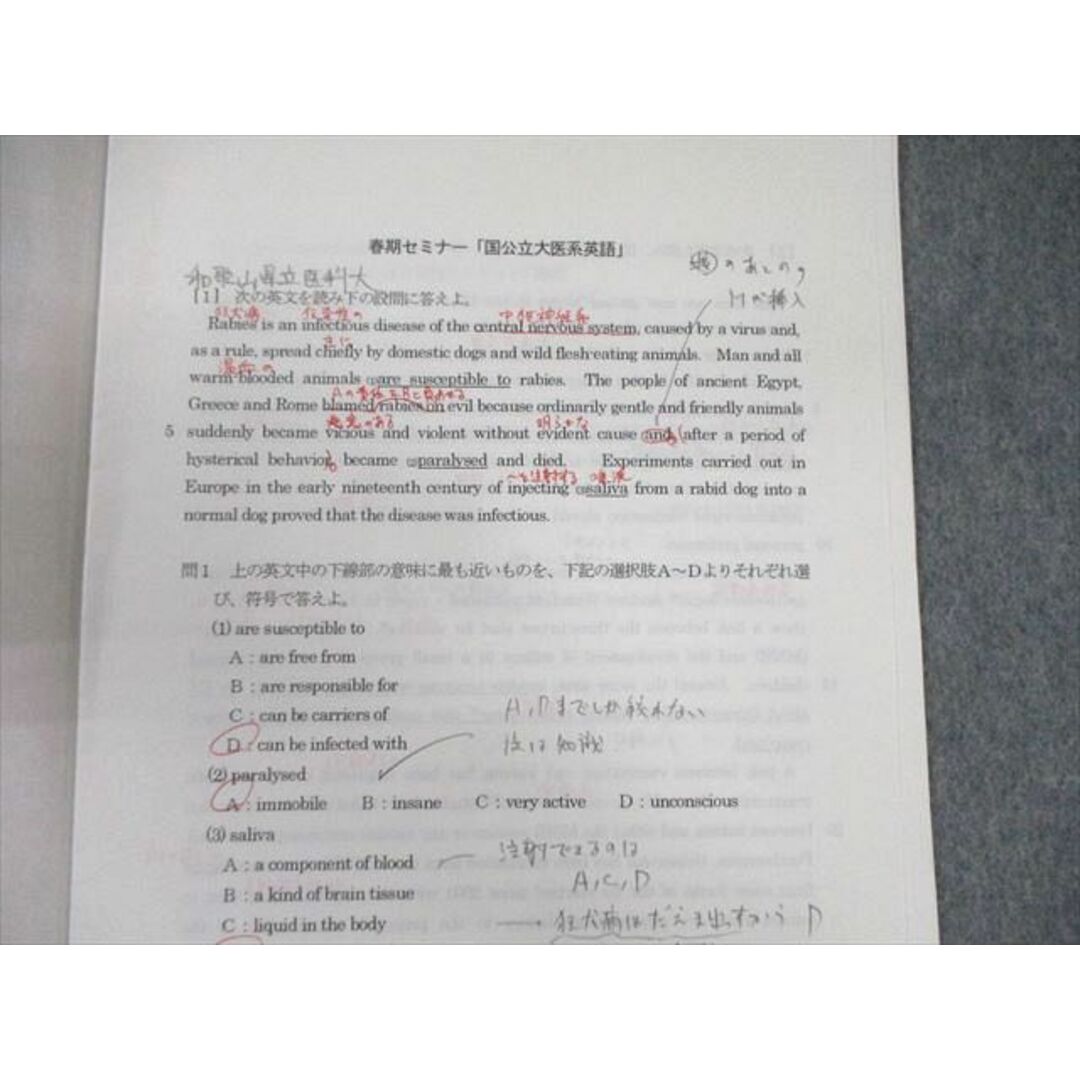 春期セミナー「国公立大医系英語」
和歌山県立医科大
のあとの,
Mが挿入
[1] 次の英文を読み下の設問に答えよ。
狂犬病 伝染性の 中枢神経系
Rabies is an infectious disease of the central nervous system, caused by a virus and,
主に
as a rule, spread chiefly by domestic dogs and wild flesh-eating animals. Man and all
温血の
warm-blooded animals (1)are susceptible to rabies. The people of ancient Egypt,
Greece and Rome blamed rabies on evil because ordinarily gentle and friendly animals
悪意のある 明らかな
5 suddenly became vicious and violent without evident cause and (after a period of
hysterical behavior) became (2)paralysed and died. Experiments carried out in
~を注射する 唾液
Europe in the early nineteenth century of injecting (3)saliva from a rabid dog into a
normal dog proved that the disease was infectious.
問1 上の英文中の下線部の意味に最も近いものを、下記の選択肢A~Dよりそれぞれ選
び、符号で答えよ。
(1) are susceptible to
A : are free from
B : are responsible for
C : can be carriers of
A,Dまでしか絞れない
D : can be infected with
後は知識
(2) paralysed
A : immobile B : insane C : very active D : unconscious
(3) saliva
注射できるのは
A : a component of blood
A,C,D
B : a kind of brain tissue
C : liquid in the body
狂犬病はだえき出すから D